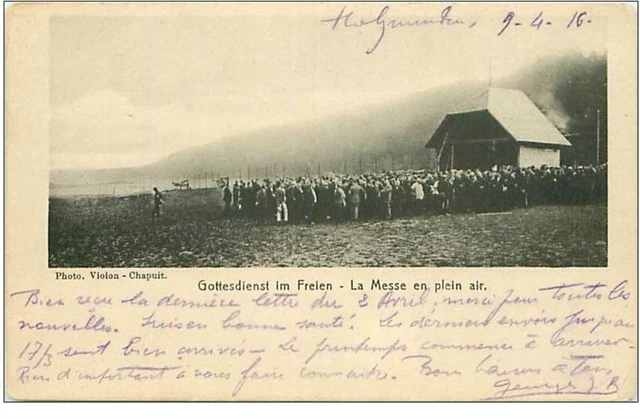 Holzminden, 9-4-16.
Photo. Violon - Chapuit.
Gottesdienst im Freien - La Messe en plein air.
Bien reçu la dernière lettre du 2 Avril, merci pour toutes les
nouvelles. Suis en bonne santé. Les derniers envois jusqu'au
17/3 sont bien arrivés - Le printemps commence à arriver.
Rien d'important à vous faire connaître. Bons baisers à tous
Georges